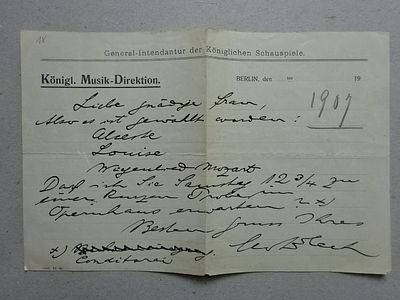 18
General-Intendantur der Königlichen Schauspiele.
Königl. Musik-Direktion.
BERLIN, den 19
1907
Liebe gnädige Frau,
Also es ist gewählt worden:
Alceste
Louise
Wiegenlied Mozart
Darf ich Sie Samstag 12 3/4 zu
einer kurzen Probe im
Opernhaus erwarten? x)
Besten Gruss Ihres
Leo Blech
x)
Conditorei